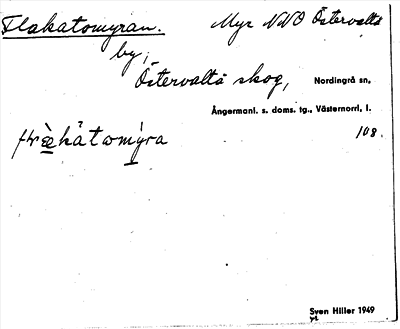 Flakatomyran. Myr NNO Östervalls
by,
Östervalls skog, Nordingrå sn,
Ångermanl. s. doms. tg., Västernorrl. l.
108.
Sven Hiller 1949